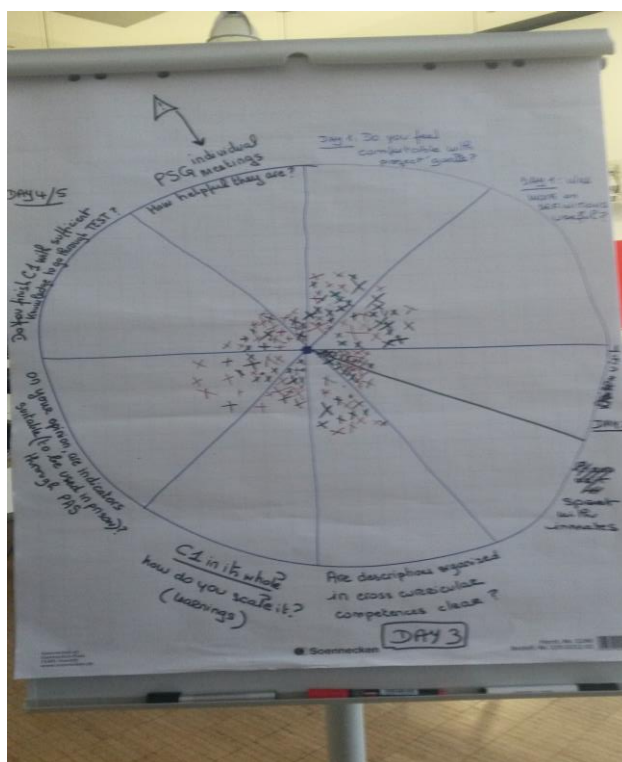 DAY 4/5
PSG individual
meetings
How helpfull they are?
Day 1: Do you feel
comfortable with
project goals?
Day 1:
useful?
Do you finish C1 with sufficient
knowledge to go through TEST?
on your opinion, are indicators
suitable (to be used in prison)?
through PAS
C1 in its whole?
how do you scale it?
(learnings)
Are descriptions organized
in cross curricular
competences clear?
DAY 3
visit
DAY
speak
with
inmates
Soennecken